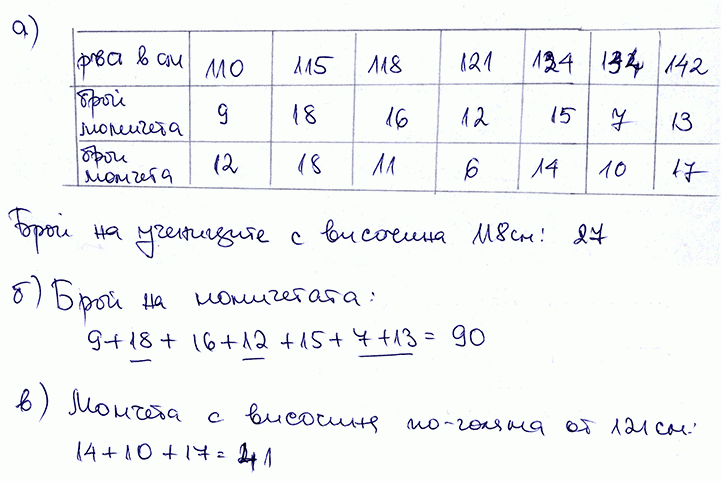 а)
ръст в см 110 115 118 121 124 134 142
брой момичета 9 18 16 12 15 7 13
брой момчета 12 18 11 6 14 10 17
Брой на учениците с височина 118 см: 27
б) Брой на момичетата:
9+18+16+12+15+7+13=90
в) Момчета с височина по-голяма от 121 см:
14+10+17=41